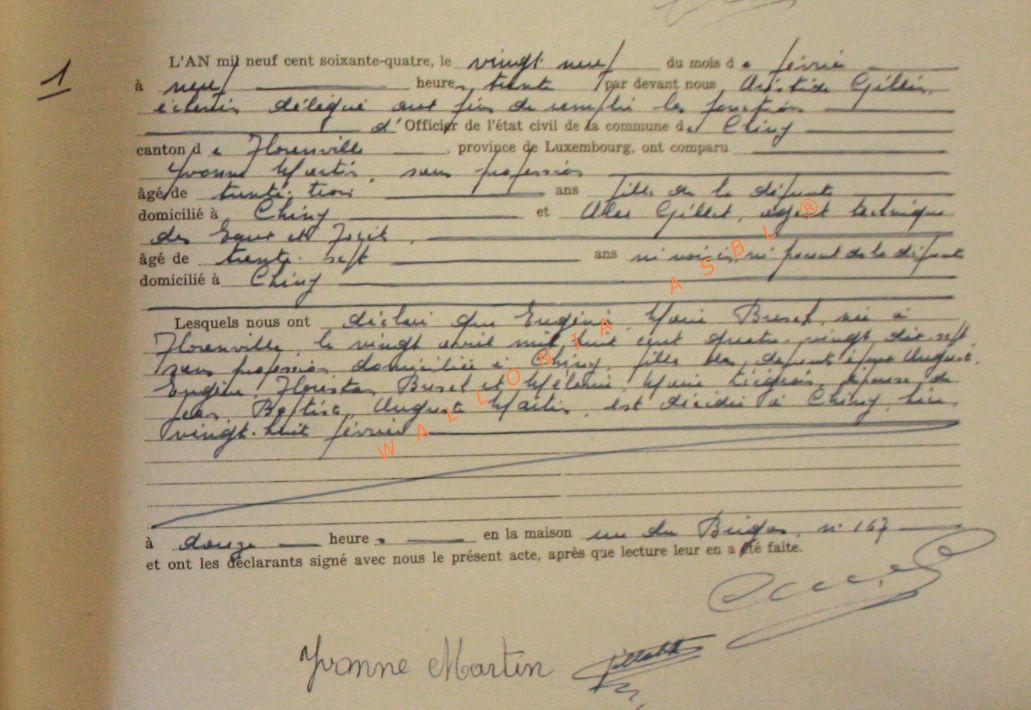 1
L'AN mil neuf cent soixante-quatre, le vingt neuf du mois de février
à neuf heures trente par devant nous Aristide Gillin,
échevin délégué aux fins de remplir les fonctions
d'Officier de l'état civil de la commune de Chiny
canton de Florenville, province de Luxembourg, ont comparu
Yvonne Martin, sans profession
âgé de trente-trois ans fille de la défunte
domicilié à Chiny et Gillet, agent technique
des Eaux et Forêts,
âgé de trente-sept ans ni voisin, ni parent de la défunte
domicilié à Chiny
Lesquels nous ont déclaré que Eugénie Marie Buset, née à
Florenville, le vingt avril mil huit cent quatre-vingt dix-sept
sans profession, domiciliée à Chiny, fille des défunts époux Auguste,
Eugène, Buset et Mélanie Marie épouse de
Jean Baptiste, Auguste Martin, est décédée à Chiny, hier
vingt-huit février
à douze heures en la maison rue du n° 167
et ont les déclarants signé avec nous le présent acte, après que lecture leur en a été faite.
Yvonne Martin
WALLONIA ASBL ®